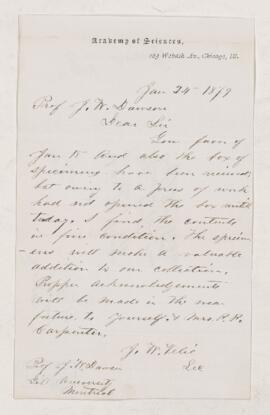 Academy of Sciences,
263 Wabash Av., Chicago, Ill.
Jan 24th 1879
Prof J. W. Dawson
Dear Sir
Your favor of
Jan 15 and also the box of
specimens have been received,
but owing to a press of work
had not opened the box until
today. I find the contents
in fine condition. The specim-
ens will make a valuable
addition to our collection.
Propper acknowledgements
will be made in the near
future to yourself & Mrs. P. P.
Carpenter.
J. W. Velie
Sec
Prof J. W. Dawson
Montreal